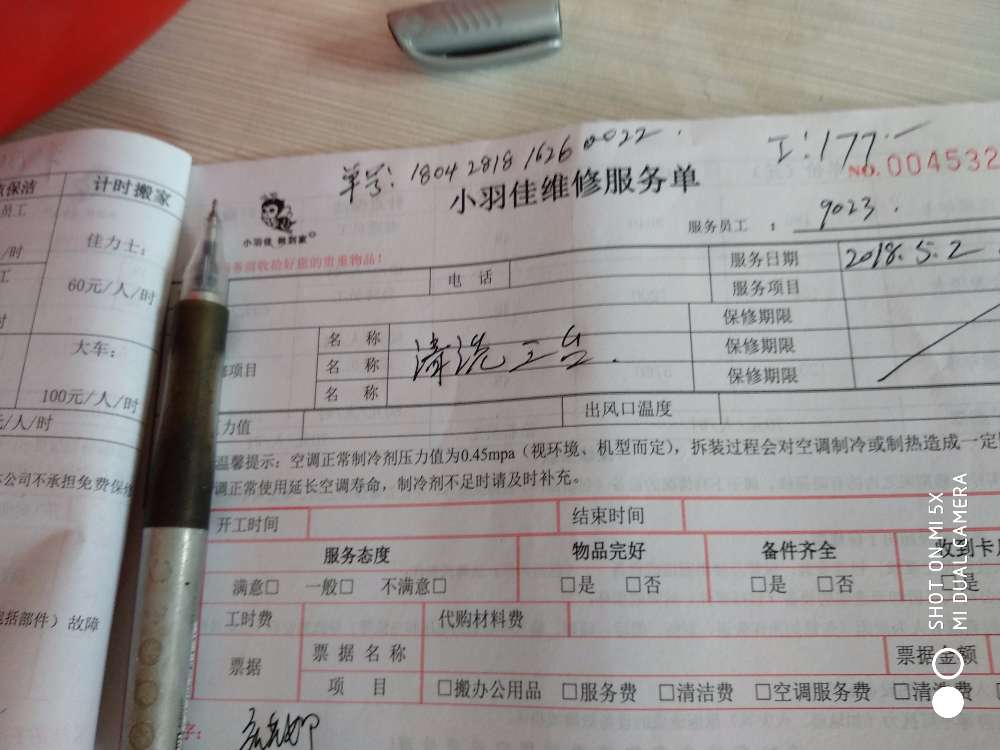 单号: 1804 2818 1626 0022.
工:177.一
小羽佳维修服务单
NO.004532
小羽佳
服务员工 : 9023.
务前收拾好您的贵重物品!
电 话
服务日期 2018.5.2
服务项目
修项目
名 称
名 称 清洗三台.
名 称
保修期限
保修期限
保修期限
力值
出风口温度
温馨提示:空调正常制冷剂压力值为0.45mpa(视环境、机型而定),拆装过程会对空调制冷或制热造成一定
调正常使用延长空调寿命,制冷剂不足时请及时补充。
开工时间
结束时间
服务态度
物品完好
备件齐全
收到卡
满意□ 一般□ 不满意□
□是 □否
□是 □否
□是
工时费
代购材料费
票据
票据名称
票据金额
项 目
□搬办公用品 □服务费 □清洁费 □空调服务费 □清洗费
保洁
计时搬家
员工
佳力士:
/时
60元/人/时
工
大车:
时
100元/人/时
元/人/时
公司不承担免费保修
包括部件)故障
SHOT ON MI 5X
MI DUAL CAMERA